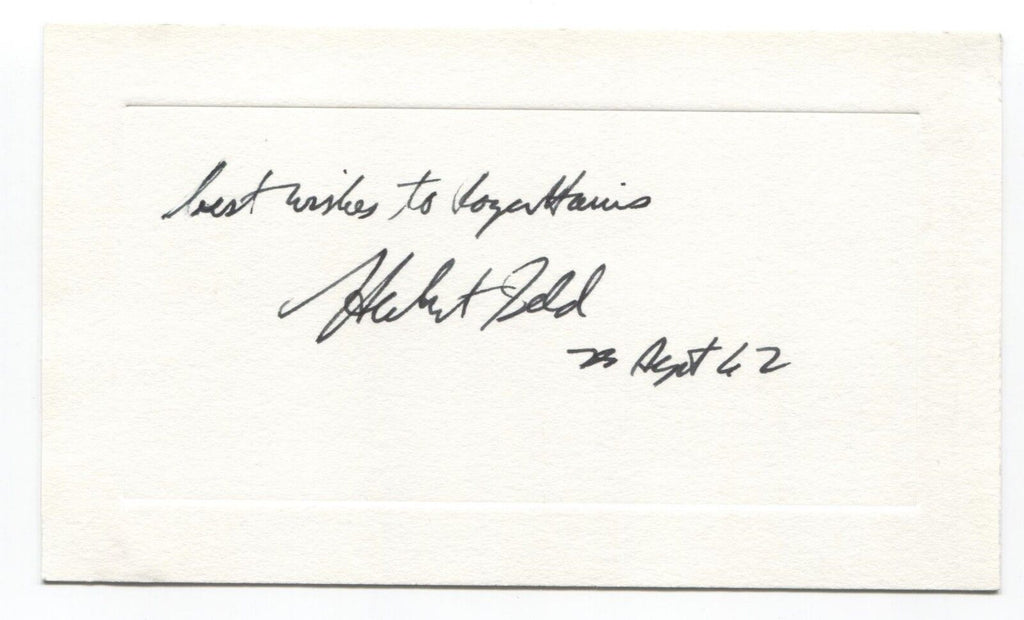 best wishes to Roger Harris
Herbert Gold
23 Sept 62